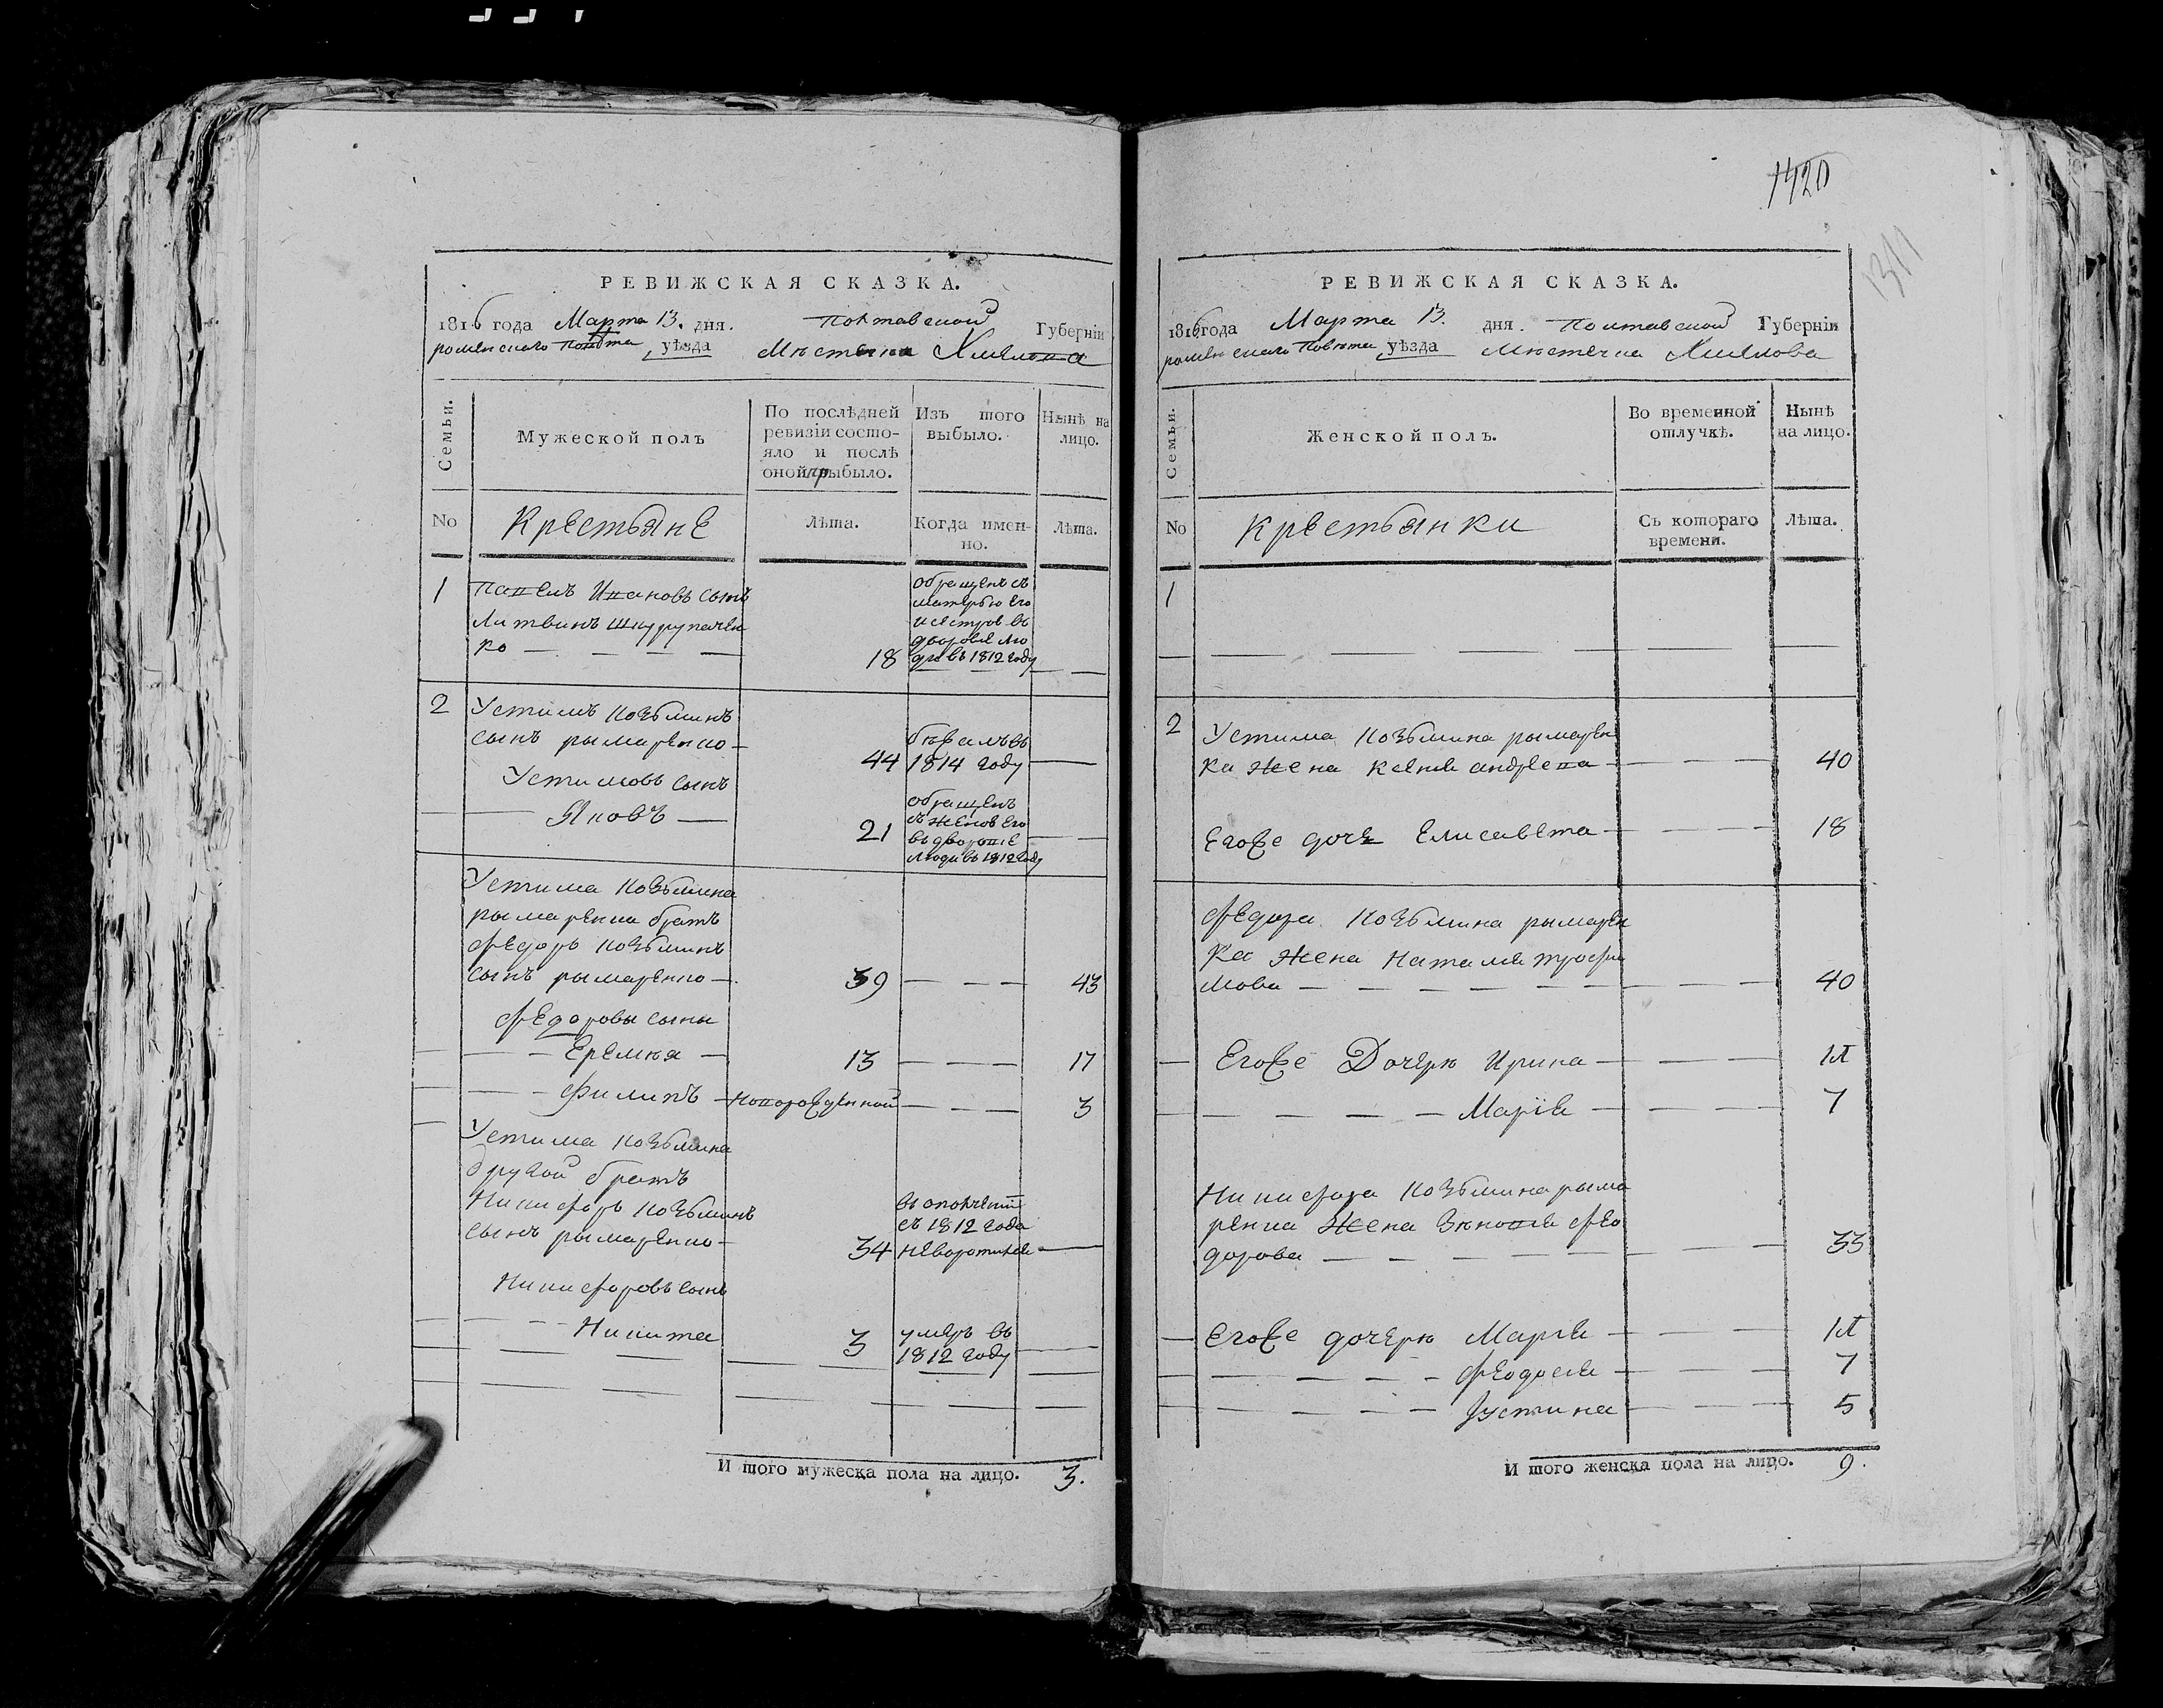 1420
1311
РЕВИЖСКАЯ СКАЗКА.
1816 года Марта 13. дня. Полтавской Губерніи
роменскаго повѣта уѣзда Мѣстечка Хмелова
Семьи.
Мужеской полъ
По послѣдней ревизіи состо-
яло и послѣ
оной прибыло.
Изъ того
выбыло.
Нынѣ на
лицо.
No
Крестьяне
Лѣта.
Когда имен-
но.
Лѣта.
1
Павелъ Ивановъ сынъ
Литвинъ Шкурупѣлен
ко
18
обращенъ съ
матерью его
и сестрою въ
дворовѣ лю
ди въ 1812 году
2
Устимъ Козьминъ
сынъ рымаренко
44
бѣжалъ въ
1814 году
Устимовъ сынъ
Яковъ
21
обращенъ
съ женою его
въ дворовіе
люди въ 1812 году
Устима Козьмина
рымаренка братъ
Федоръ Козьминъ
сынъ рымаренко
39
43
Федоровы сыны
Еремѣя
13
17
Филипъ
новорожденной
3
Устима Козьмина
другой братъ
Никифоръ Козьминъ
сынъ рымаренко
34
въ ополченіи
съ 1812 года
Никифоровъ сынъ
Никита
3
умеръ въ
1812 году
И того мужеска пола на лицо. 3.
РЕВИЖСКАЯ СКАЗКА.
1816 года Марта 13. дня. Полтавской Губерніи
роменскаго повѣта уѣзда Мѣстечка Хмелова
Семьи.
Женской полъ.
Во временной
отлучкѣ.
Нынѣ
на лицо.
No
Крестьянки
Съ котораго
времени.
Лѣта.
1
2
Устима Козьмина рымарен
ка жена Ксенія андреева
40
Егоже дочь Елисавета
18
Федора Козьмина рымарен
ка жена Наталія трофи
мова
40
Егоже Дочерѣ Ирина
Марія
7
Никифора Козьмина рыма
ренка жена Зѣновія Фео
дорова
33
Егоже дочерѣ Марія
Феодосія
7
Іустина
5
И того женска пола на лицо. 9.